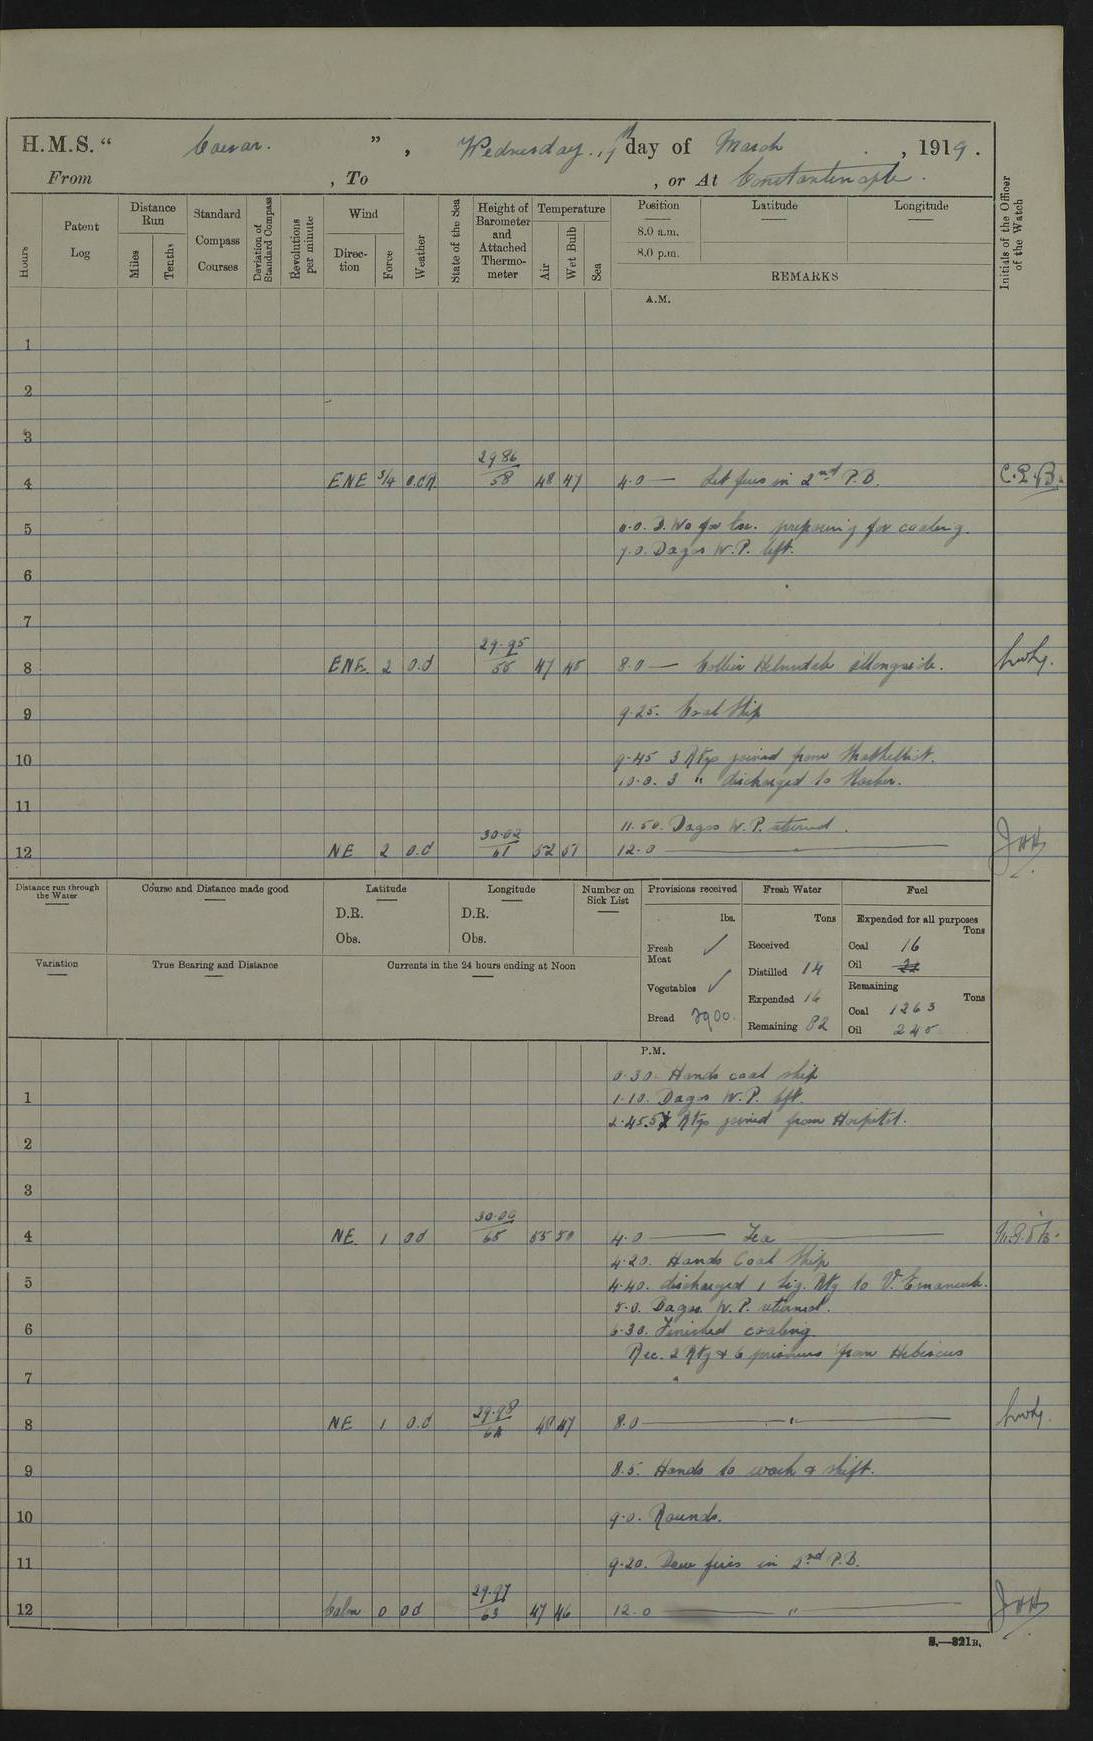 H.M.S. “ Caesar. ” , Wednesday. 19th day of March , 1919.
From , To , or At Constantinople.
Hours
Patent Log
Distance Run
Miles
Tenths
Standard Compass Courses
Deviation of Standard Compass
Revolutions per minute
Wind
Direction
Force
Weather
State of the Sea
Height of Barometer and Attached Thermometer
Temperature
Air
Wet Bulb
Sea
Position
8.0 a.m.
8.0 p.m.
Latitude
Longitude
REMARKS
Initials of the Officer of the Watch
A.M.
1
2
3
4 ENE 3/4 29.86 58 48 47 4.0 — Lit fires in 2nd P.B. C.P.B.
5 preparing for coaling.
7.0. Dagos W.P. left.
6
7
8 ENE 2 o.d 29.95 55 47 45 8.0 — Collier alongside.
9 9.25. Coal Ship
10 9.45 3 Rtgs joined from
10.0. 3 " discharged to
11
11.50. Dagos W.P. returned.
12 NE 2 o.d 30.02 61 52 51 12.0 " JHH
Distance run through the Water
Course and Distance made good
Latitude
D.R.
Obs.
Longitude
D.R.
Obs.
Number on Sick List
Variation
True Bearing and Distance
Currents in the 24 hours ending at Noon
Provisions received
lbs.
Fresh Meat ✓
Vegetables ✓
Bread 2900.
Fresh Water
Tons
Received
Distilled 14
Expended 16
Remaining 82
Fuel
Expended for all purposes
Tons
Coal 16
Oil
Remaining
Tons
Coal 1263
Oil 245
P.M.
0.30. Hands coal ship
1 1.10. Dagos W.P. left.
2.45. 5 Rtgs joined from Hospital.
2
3
4 NE 1 od 30.00 65 55 50 4.0 — Tea
4.20. Hands Coal Ship
5 4.40. discharged 1 Sig. Rtg to V. Emanuele.
5.0. Dagos W.P. returned.
6 6.30. Finished coaling
Rec. 2 Rtg & 6 prisoners from Hibiscus
7
8 NE 1 o.d 29.98 64 48 47 8.0 "
9 8.5. Hands to wash & shift.
10 9.0. Rounds.
11 9.20. Draw fires in 2nd P.B.
12 Calm 0 od 29.97 63 47 46 12.0 " JHH
S.—321B.